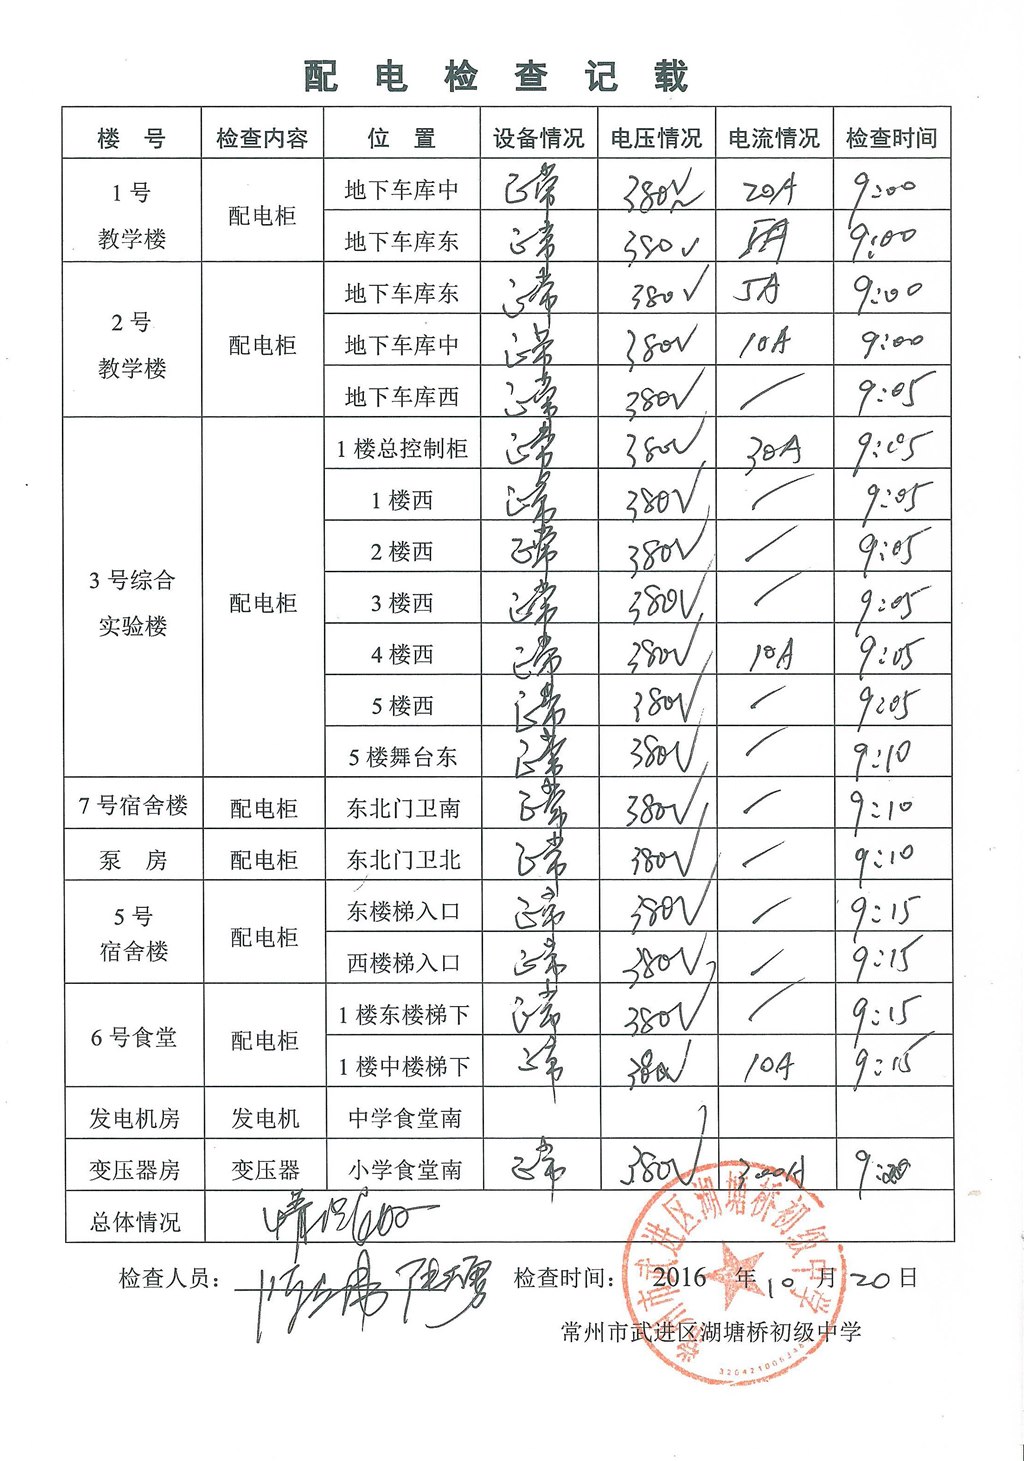 配 电 检 查 记 载
楼 号 检查内容 位 置 设备情况 电压情况 电流情况 检查时间
1号 教学楼 配电柜 地下车库中 正常 380V 20A 9:00
地下车库东 正常 380V 5A 9:00
2号 教学楼 配电柜 地下车库东 正常 380V 5A 9:00
地下车库中 正常 380V 10A 9:00
地下车库西 正常 380V / 9:05
3号综合 实验楼 配电柜 1楼总控制柜 正常 380V 30A 9:05
1楼西 正常 380V / 9:05
2楼西 正常 380V / 9:05
3楼西 正常 380V / 9:05
4楼西 正常 380V 10A 9:05
5楼西 正常 380V / 9:05
5楼舞台东 正常 380V / 9:10
7号宿舍楼 配电柜 东北门卫南 正常 380V / 9:10
泵 房 配电柜 东北门卫北 正常 380V / 9:10
5号 宿舍楼 配电柜 东楼梯入口 正常 380V / 9:15
西楼梯入口 正常 380V / 9:15
6号食堂 配电柜 1楼东楼梯下 正常 380V / 9:15
1楼中楼梯下 正常 380V 10A 9:15
发电机房 发电机 中学食堂南
变压器房 变压器 小学食堂南 正常 380V 300A 9:20
总体情况
检查人员： 检查时间： 2016 年 10 月 20 日
常州市武进区湖塘桥初级中学
常州市武进区湖塘桥初级中学